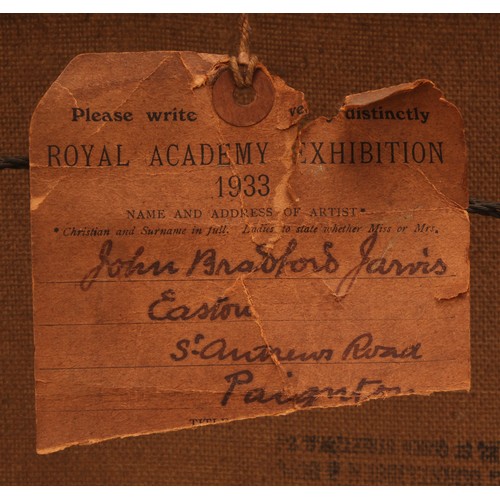 Please write ve distinctly
ROYAL ACADEMY EXHIBITION
1933
NAME AND ADDRESS OF ARTIST*
* Christian and Surname in full. Ladies to state whether Miss or Mrs.
John Bradford Jarvis
Easton
St Andrews Road
Paignton